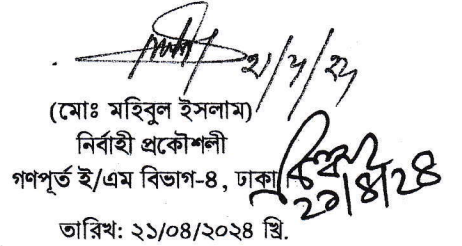 (মোঃ মহিবুল ইসলাম)
নির্বাহী প্রকৌশলী
গণপূর্ত ই/এম বিভাগ-৪, ঢাকা
২১/৪/২৪
তারিখ: ২১/০৪/২০২৪ খ্রি.